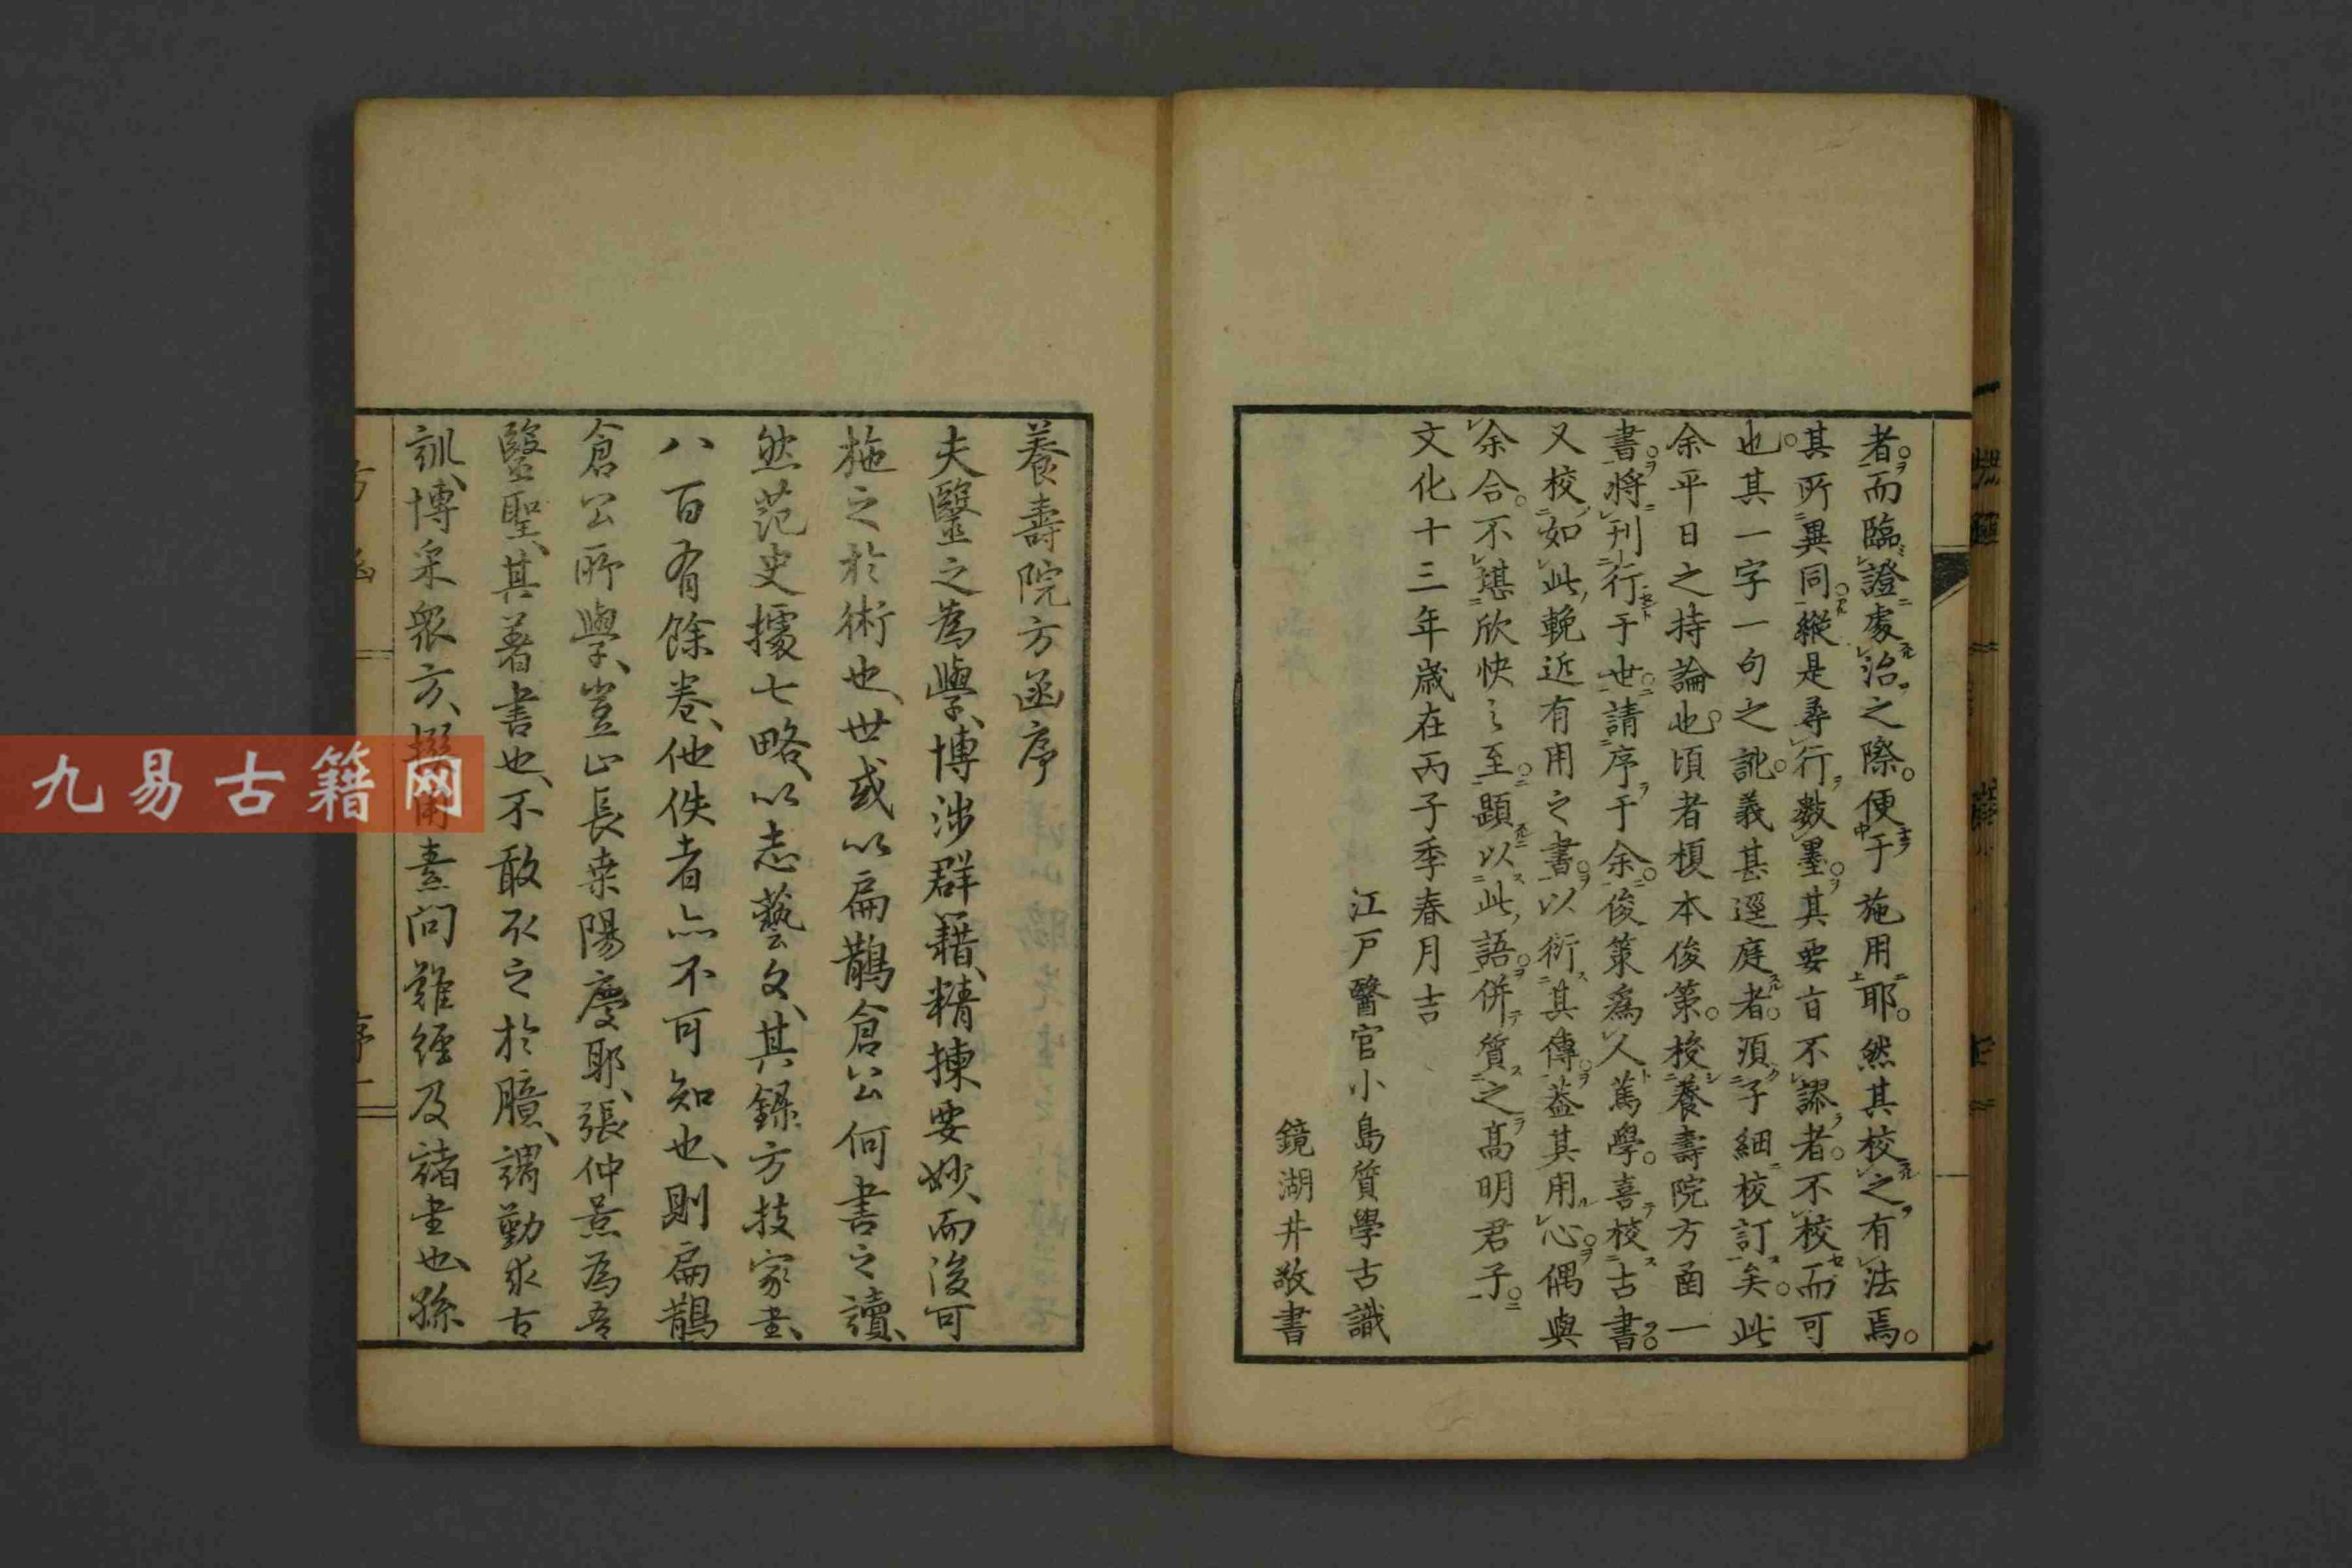 者而臨證處治之際便于施用耶然其校之有法焉
其所異同縱是尋行數墨其要旨不謬者不校而可
也其一字一句之訛義甚逕庭者須子細校訂矣此
余平日之持論也頃者榎本俊策校養壽院方函一
書將刊行于世請序于余俊策爲人篤學喜校古書
又校如此輓近有用之書以衍其傳蓋其用心偶與
余合不堪欣快之至題以此語併質之高明君子
文化十三年歲在丙子季春月吉
江戶醫官小島質學古識
鏡湖井敬書
養壽院方函序
夫醫之為學博涉群籍精揀要妙而後可
施之於術也世或以扁鵲倉公何書之讀
然范史據七略以志藝文其錄方技家書
八百有餘卷他佚者亦不可知也則扁鵲
倉公所學豈止長桒陽慶耶張仲景為吾
醫聖其著書也不敢取之於臆謂勤求古
訓博采衆方撰用素問難經及諸書也孫
九易古籍网